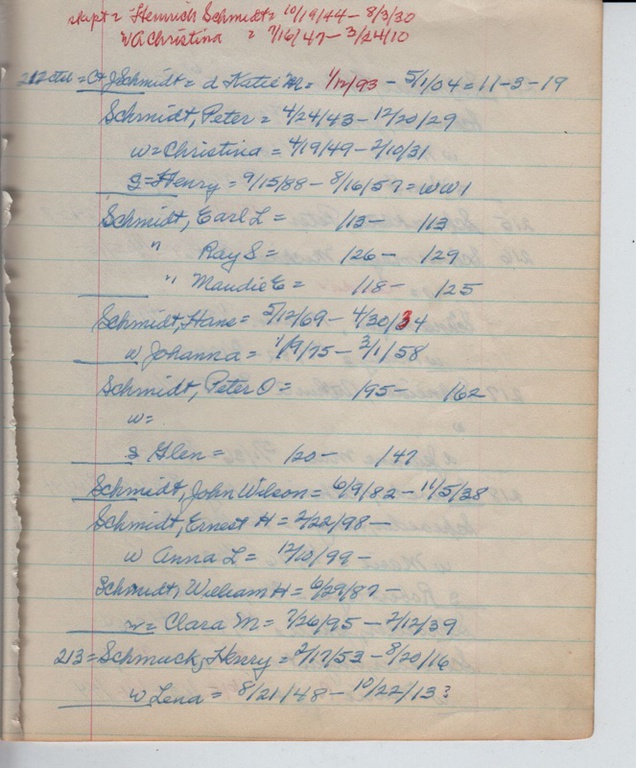 skipt = Heinrich Schmidt = 10/19/44 - 8/3/30
w A Christina = 7/16/47 - 3/24/10
212 ctd = Ct J Schmidt = d Katie M = 1/12/93 - 5/1/04 = 11-3-19
Schmidt, Peter = 4/24/43 - 12/20/29
w = Christina = 4/19/49 - 2/10/31
s = Henry = 9/15/88 - 8/16/57 = WW1
Schmidt, Earl L = /13 - /13
" Ray S = /26 - /29
" Maudie E = /18 - /25
Schmidt, Hans = 5/12/69 - 4/30/34
w Johanna = 1/9/75 - 3/1/58
Schmidt, Peter O = /95 - /62
w =
s Glen = /20 - /47
Schmidt, John Wilson = 6/9/82 - 11/5/38
Schmidt, Ernest H = 2/22/98 -
w Anna L = 12/10/99 -
Schmidt, William H = 6/29/87 -
w = Clara M = 7/26/95 - 2/12/39
213 = Schmuck, Henry = 2/17/53 - 8/20/16
w Lena = 8/21/48 - 10/22/13?